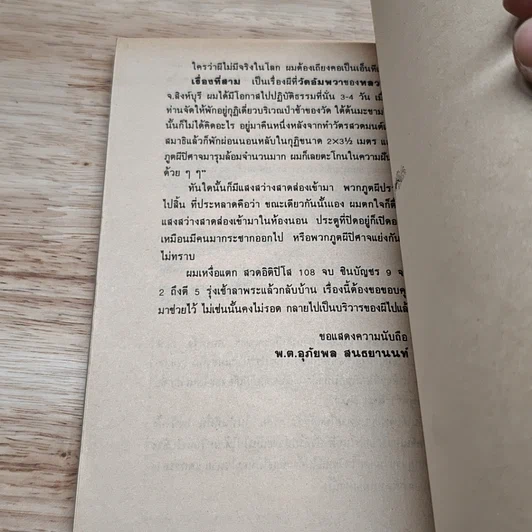 ใครว่าผีไม่มีจริงในโลก ผมต้องเถียงคอเป็นเอ็นทีเ
เรื่องที่สาม เป็นเรื่องผีที่วัดอัมพวาของหลว
จ.สิงห์บุรี ผมได้มีโอกาสไปปฏิบัติธรรมที่นั่น 3-4 วัน เมื
ท่านจัดให้พักอยู่กุฏิเดี่ยวบริเวณป่าช้าของวัด ใต้ต้นมะขาม
นั้นก็ไม่ได้คิดอะไร อยู่มาคืนหนึ่งหลังจากทำวัตรสวดมนต์
สมาธิแล้วก็พักผ่อนนอนหลับในกุฏิขนาด 2×3½ เมตร แ
ภูตผีปีศาจมารุมล้อมจำนวนมาก ผมก็เลยตะโกนในความฝัน
ด้วย ๆ ๆ"
ทันใดนั้นก็มีแสงสว่างสาดส่องเข้ามา พวกภูตผีปีระ
ไปสิ้น ที่ประหลาดคือว่า ขณะเดียวกันนั้นเอง ผมตกใจก็ตื
แสงสว่างสาดส่องเข้ามาในห้องนอน ประตูที่ปิดอยู่ก็เปิดอ
เหมือนมีคนมากระชากออกไป หรือพวกภูตผีปีศาจแย่งกัน
ไม่ทราบ
ผมเหงื่อแตก สวดอิติปิโส 108 จบ ชินบัญชร 9 จ
2 ถึงตี 5 รุ่งเช้าลาพระแล้วกลับบ้าน เรื่องนี้ต้องขอขอบคุ
มาช่วยไว้ ไม่เช่นนั้นคงไม่รอด กลายไปเป็นบริวารของผีไปแล้
ขอแสดงความนับถือ
พ.ต.อุภัยพล สนธยานนท์